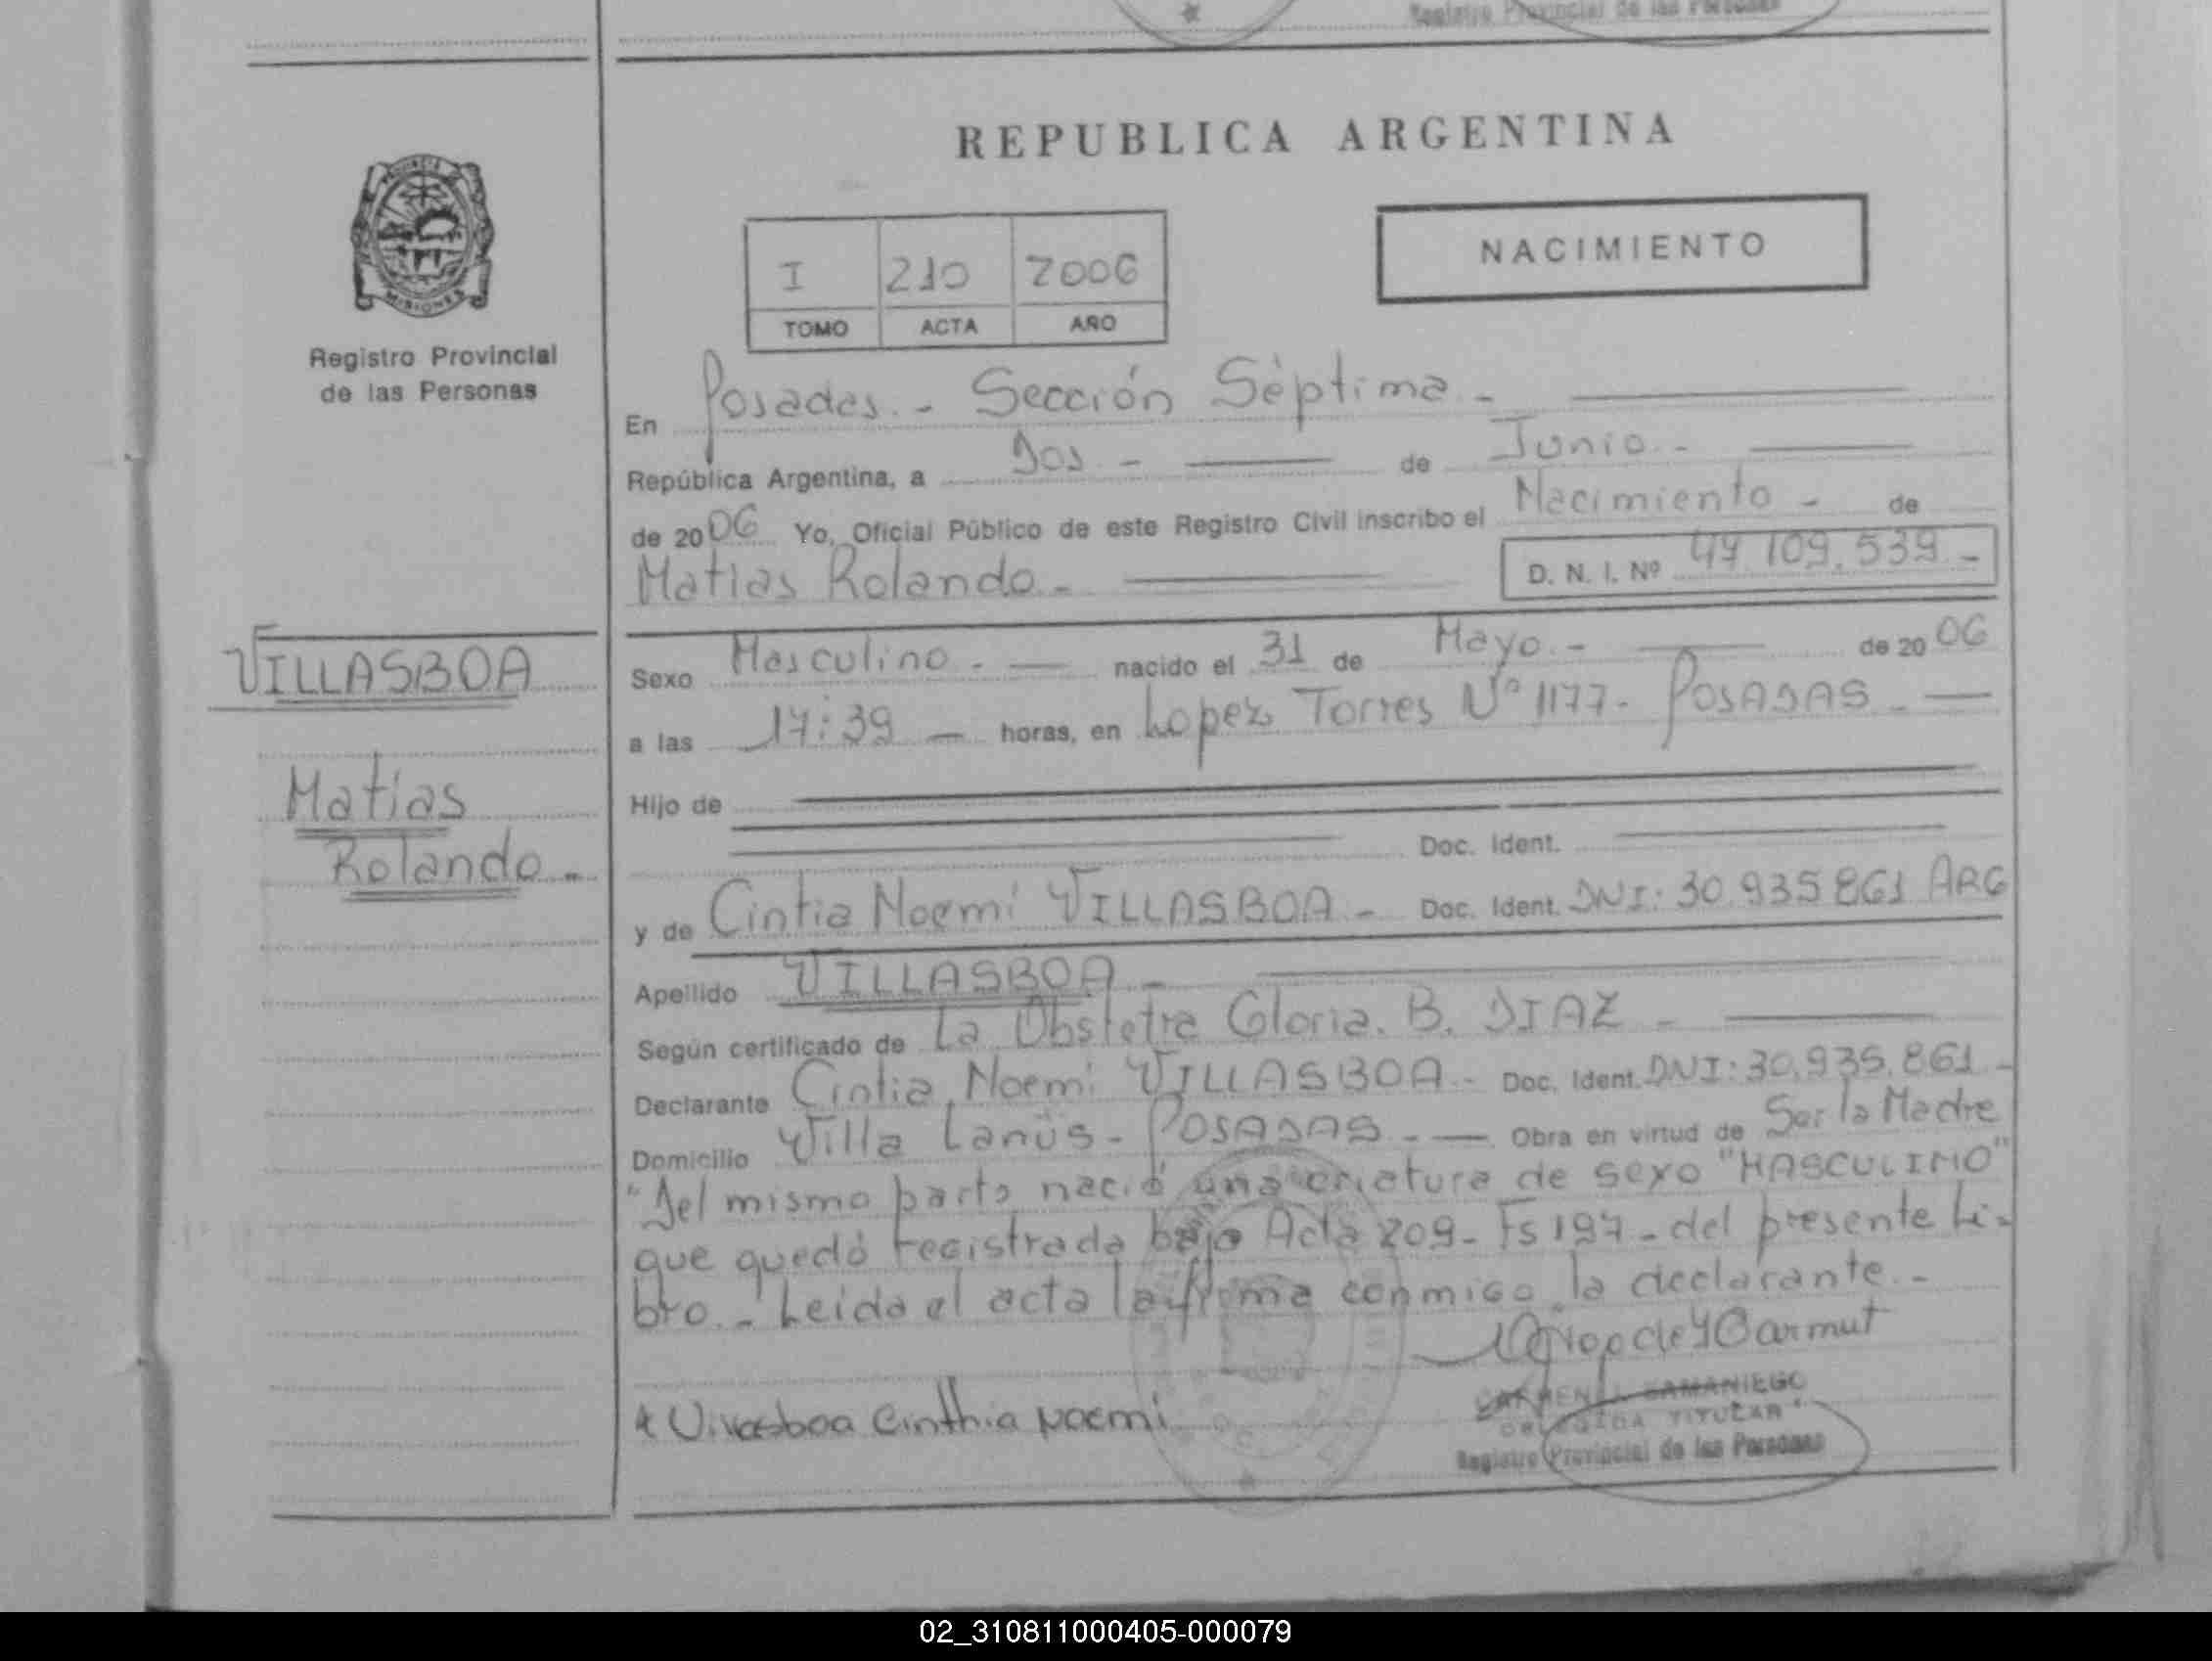 Registro Provincial de las Personas
REPUBLICA ARGENTINA
PROVINCIA
MISIONES
Registro Provincial
de las Personas
NACIMIENTO
I 210 2006
TOMO ACTA AÑO
En Posadas.- Sección Séptima -
República Argentina, a Dos - de Junio.-
de 2006 Yo, Oficial Público de este Registro Civil inscribo el Nacimiento - de
Matias Rolando.-
D. N. I. Nº 47 109.539 -
VILLASBOA
Matias
Rolando.-
Sexo Masculino.- nacido el 31 de Mayo.- de 2006
a las 17:39 - horas, en Lopez Torres Nº 1177- POSADAS.-
Hijo de
Doc. Ident.
y de Cintia Noemi VILLASBOA - Doc. Ident. DNI: 30.935 861 ARG
Apellido VILLASBOA -
Según certificado de La Obstetra Gloria. B. DIAZ -
Declarante Cintia Noemi VILLASBOA - Doc. Ident. DNI: 30.935.861 -
Domicilio Villa Lanús - POSADAS.- Obra en virtud de Ser la Madre
"Del mismo parto nació una criatura de sexo "MASCULINO"
que quedó registrada bajo Acta 209- Fs 197- del presente Li-
bro.- Leida el acta la firma conmigo la declarante.-
Villasboa Cinthia Noemi
CARMEN SAMANIEGO
DELEGADA TITULAR
Registro Provincial de las Personas
02_310811000405-000079